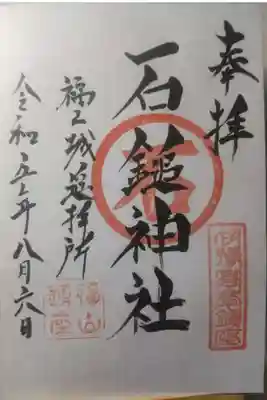 奉拝
石
石鎚神社
福山城遥拝所
令和五年八月六日